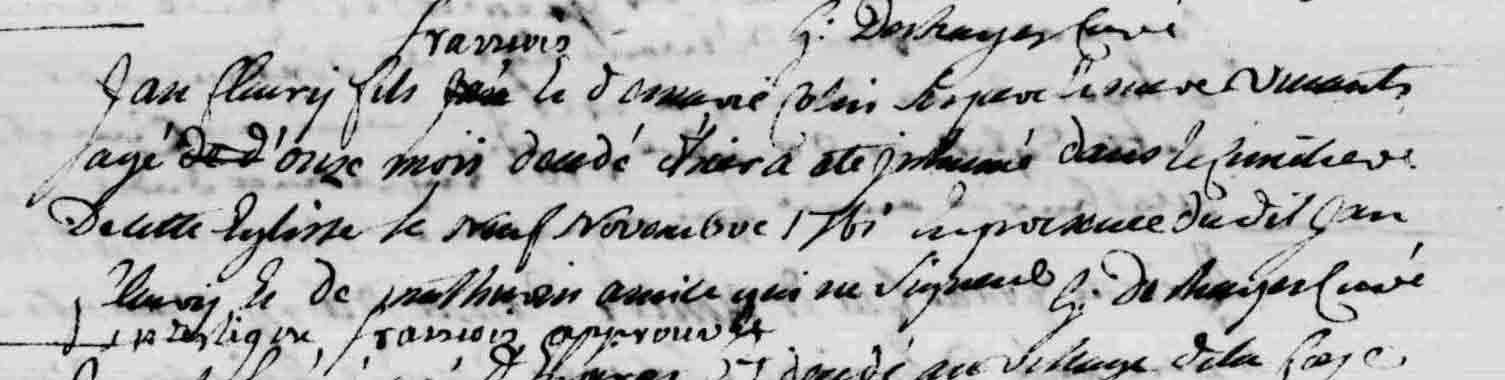 fransois G. Deshayes Curé
Jan fleury fils Jan &c de marie Colin ses pere & mere vivants
agé de d'onze mois decedé d'hier a ete jnhumé dans le Cimetiere
De cette Eglisse le neuf Novembre 1761 en presence du dit Jan
fleury & de mathurin qui ne signent G. Deshayes Curé
interligne fransois approuvé
decedé au village de la